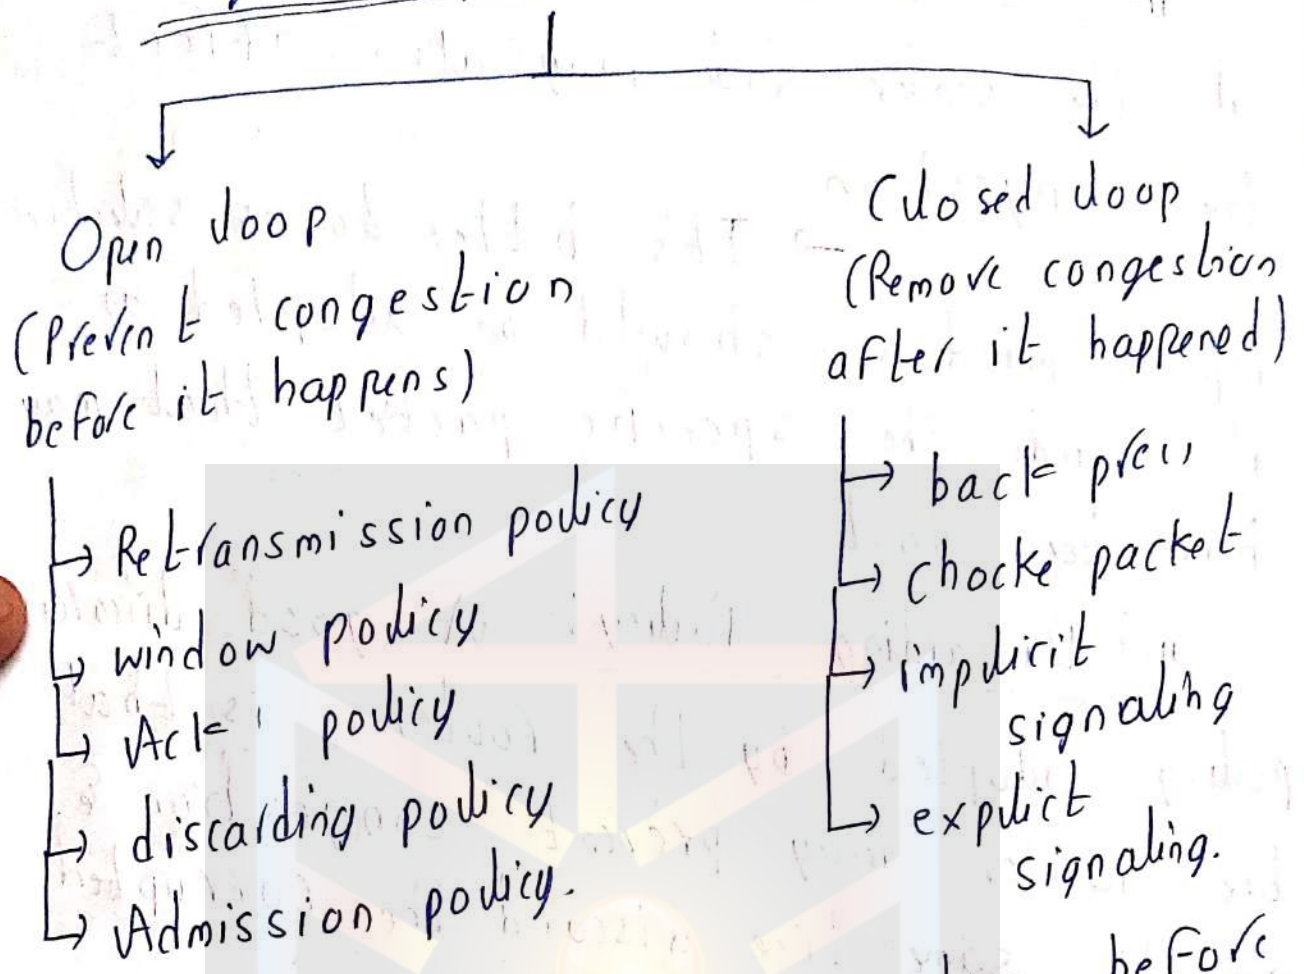 Open loop
(Prevent congestion
before it happens)
→ Retransmission policy
→ window policy
→ Ack' policy
→ discarding policy
→ Admission policy.
Closed loop
(Remove congestion
after it happened)
→ back
→ chocke packet
→ implicit
signaling
→ explict
signaling.
before